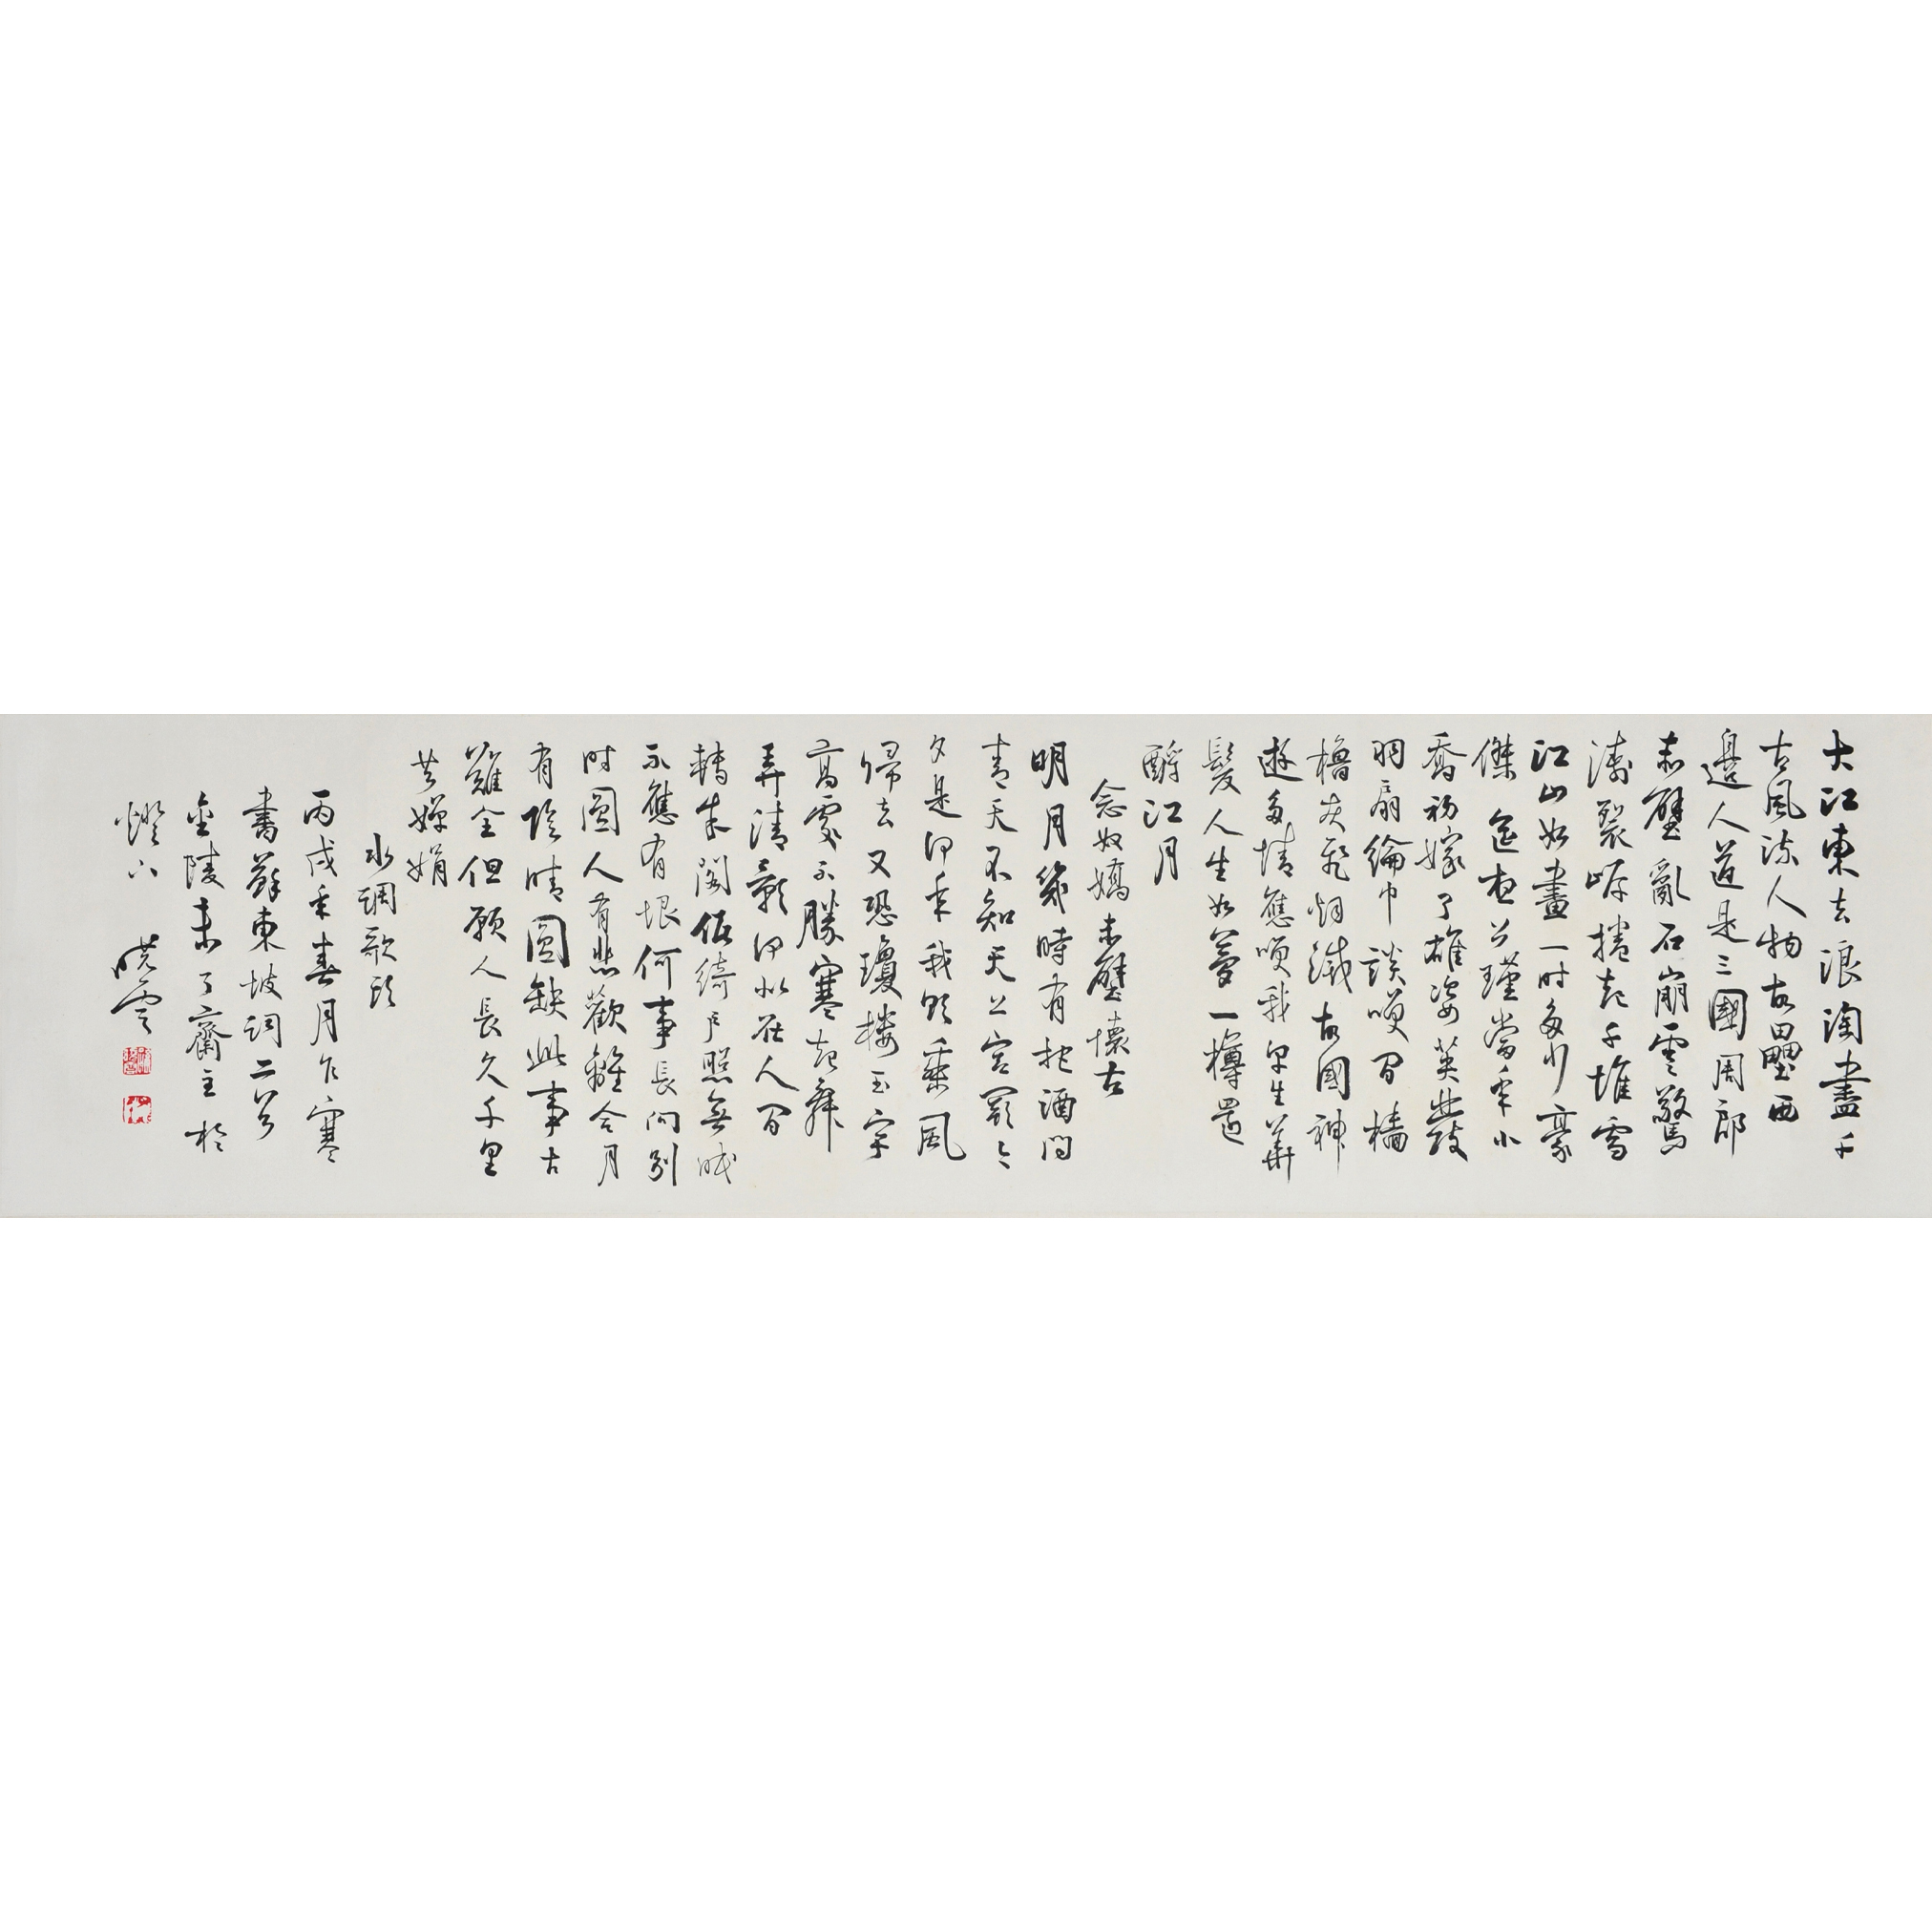 大江東去浪淘盡千
古風流人物故壘西
邊人道是三國周郎
赤壁亂石崩雲驚
濤裂岸捲起千堆雪
江山如畫一时多少豪
傑遥想公瑾當年小
喬初嫁了雄姿英發
羽扇綸巾談嘆间檣
櫓灰飛烟滅故國神
遊多情應嘆我早生華
髮人生如夢一樽還
酹江月
念奴嬌赤壁懷古
明月幾時有把酒問
青天不知天上宫闕今
夕是何年我欲乘風
歸去又恐瓊樓玉宇
高處不勝寒起舞
弄清影何似在人间
轉朱閣低綺户照無眠
不應有恨何事長向别
时圆人有悲歡離合月
有陰晴圓缺此事古
難全但願人長久千里
共嬋娟
水調歌頭
丙戌年春月乍寒
書蘇東坡詞二首
金陵未了齋主於
燈下 曉雲